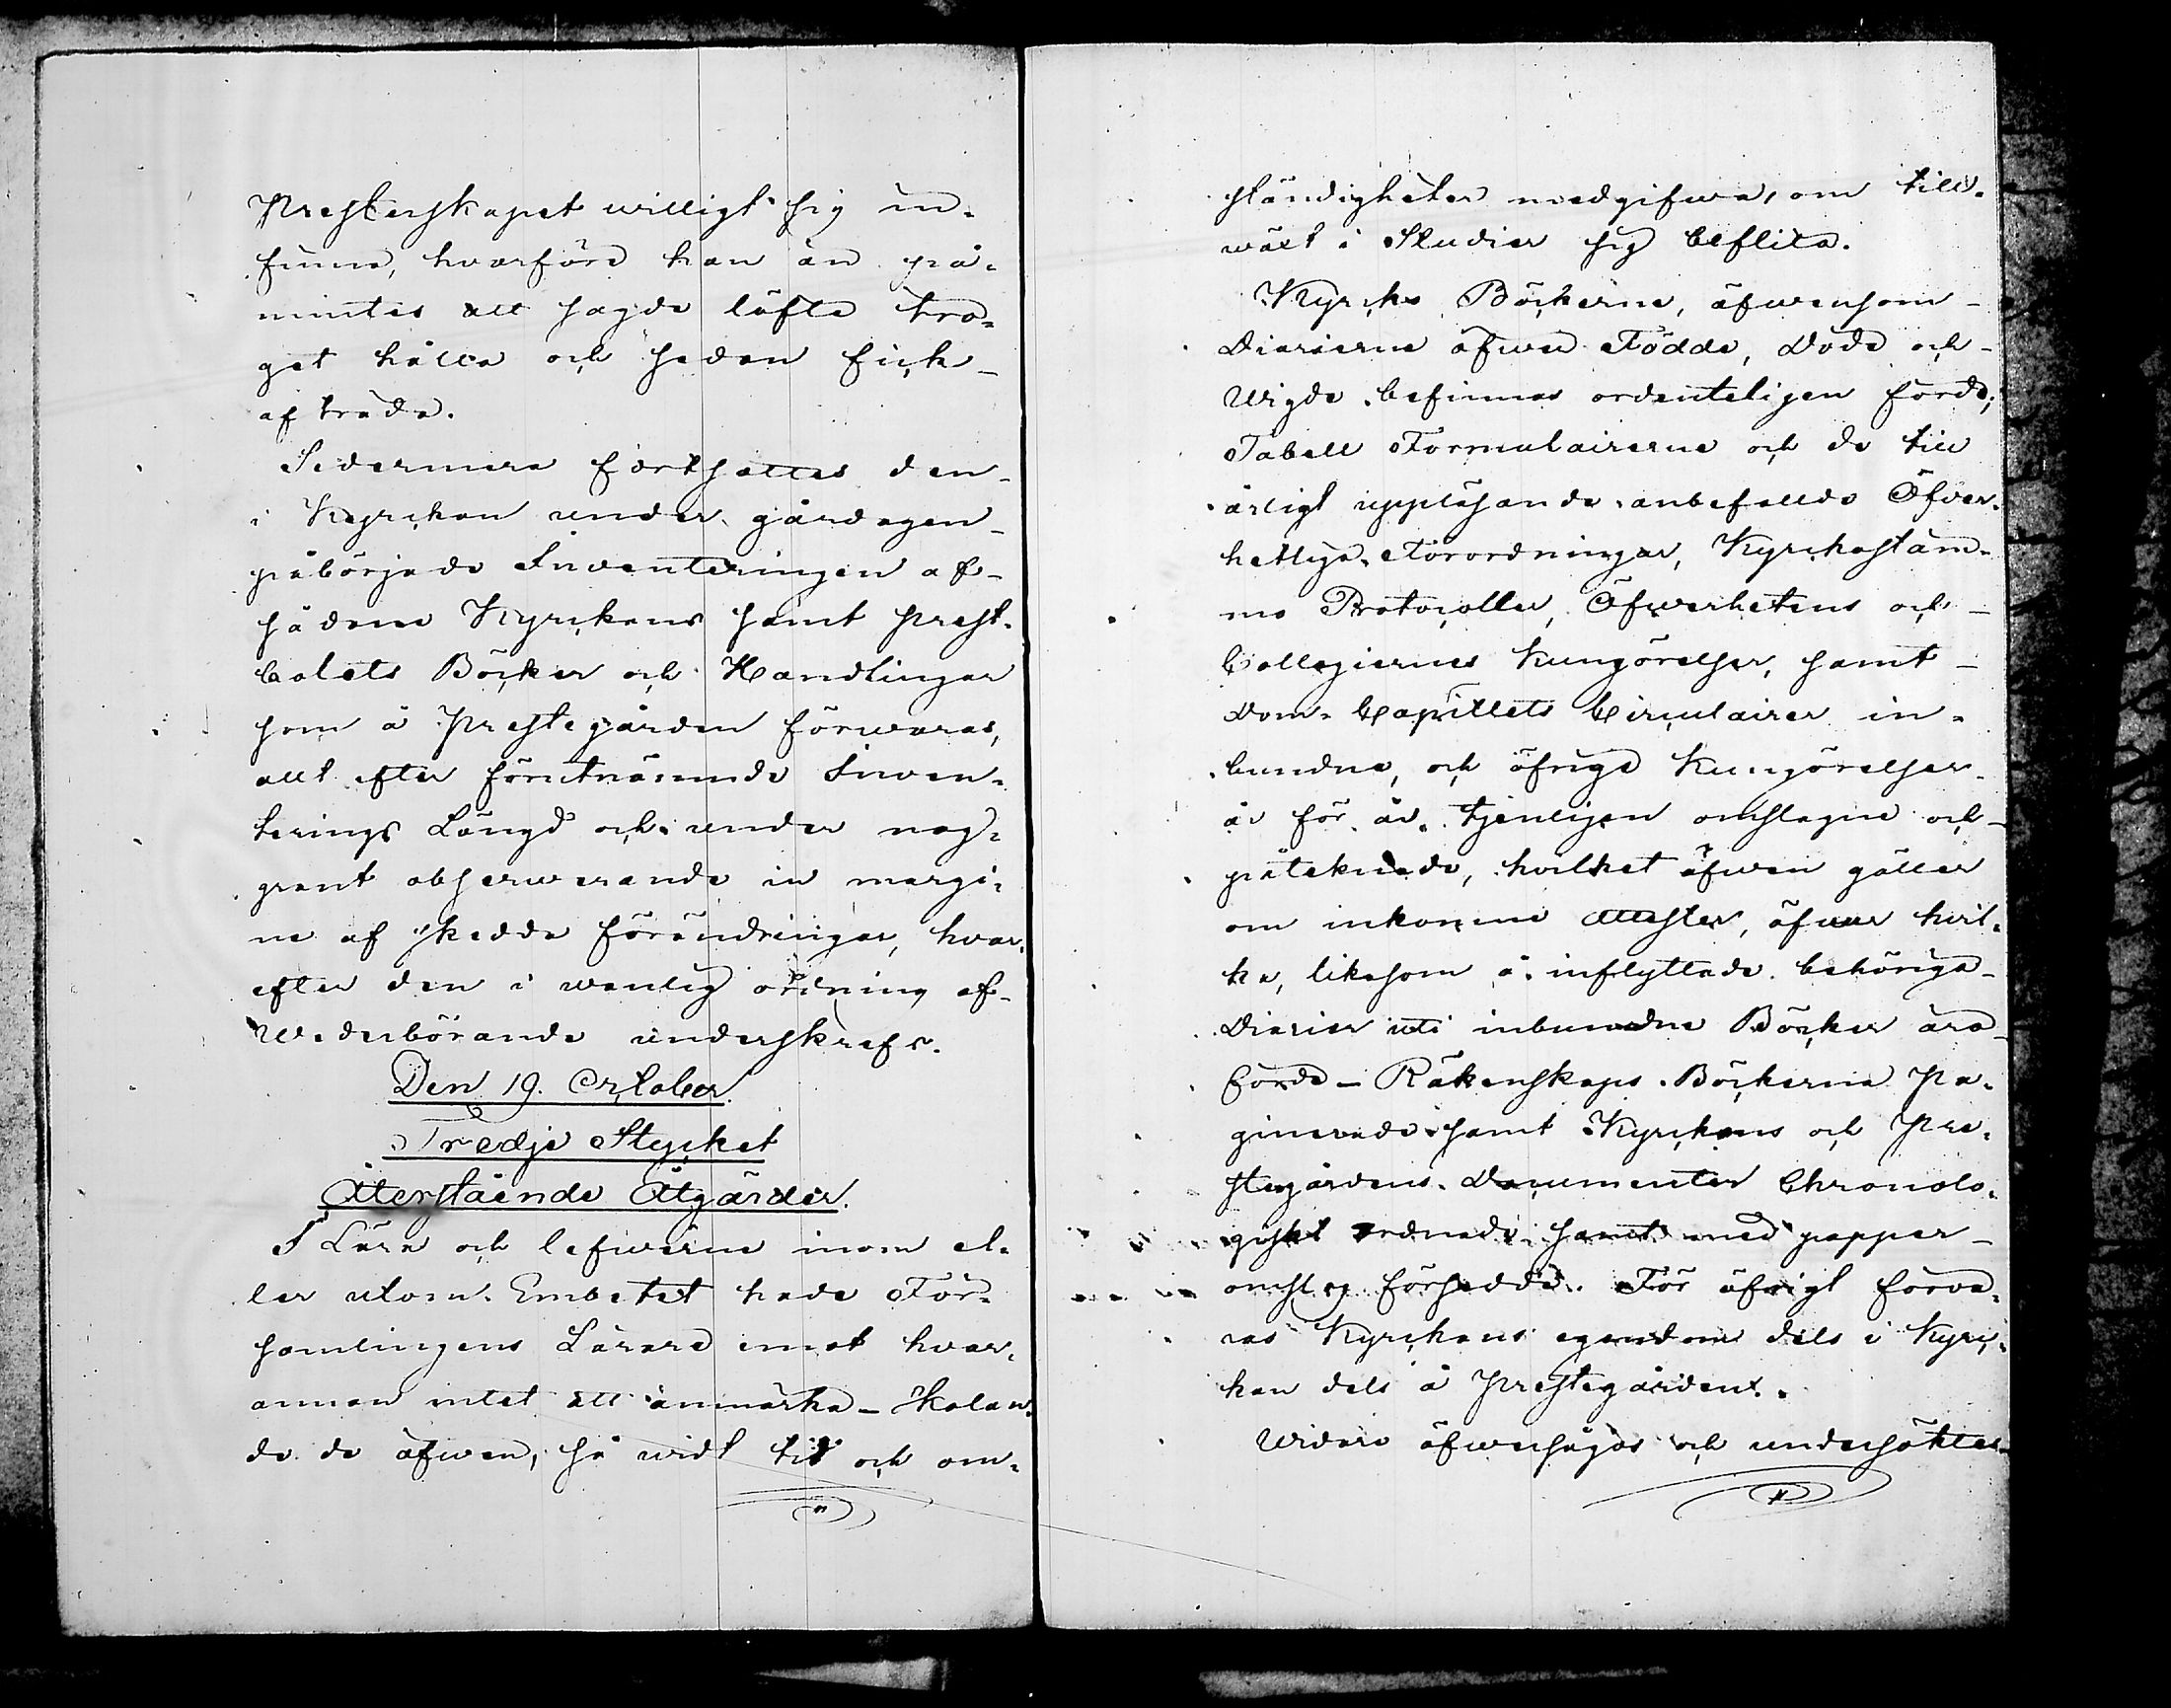 Presterskapet willigt sig in-
finna, hvarföre han än på-
mintes att sagde löfte tro-
get hålla och sedan fick
afträda.
Sedermera fortsattes den
i Kyrckan under gårdagen
påbörjade Inventeringen af
sådane Kyrckans samt prest-
bolets Böcker och Handlingar
som å Prestegården förwaras,
allt efter förutnämnde Inven-
terings Längd och under nog-
grant observerande in margi-
ne af skedda förändringar, hvar-
efter den i wanlig ordning af
Wederbörande underskrefs.
Den 19. October.
Tredje Stycket
Återstående Åtgärder.
I Lära och lefwerne inom el-
ler utom Embetet hade För-
samlingens Lärare emot hvar-
annan intet att anmärka - Skolan-
de de äfwen, så widt tid och om-
ständigheter medgifwa, om till-
wäxt i Studier sig beflita.
Kyrcko Böckerne, äfwensom
Diarierne öfwer Födde, Döde och
Wigde befinnas ordenteligen förde;
Tabell Formulairerne och de till
årligt uppläsande anbefallde Öfver-
hetliga Förordningar, Kyrckostäm-
mo Protocoller, Öfwerhetens och
Collegiernes Kungörelser, samt
Dom-Capitlets Circulairer in-
bundne, och öfrige Kungörelser
år för år tjenligen omslagne och
påteknade, hvilket äfwen gäller
om inkomne Attester, öfwer hvil-
ka, likasom å inflyttade behöriga
Diarier uti inbundne Böcker äro
förde - Räkenskaps-Böckerne Pa-
ginerade samt Kyrckans och Pre-
stegårdens Documenter Chronolo-
giskt ordnade samt med papper
omslag försedde. För öfrigt förva-
ras Kyrckans egendom dels i Kyrc-
kan dels å Prestegården.
Widare öfwersågos och undersöktes